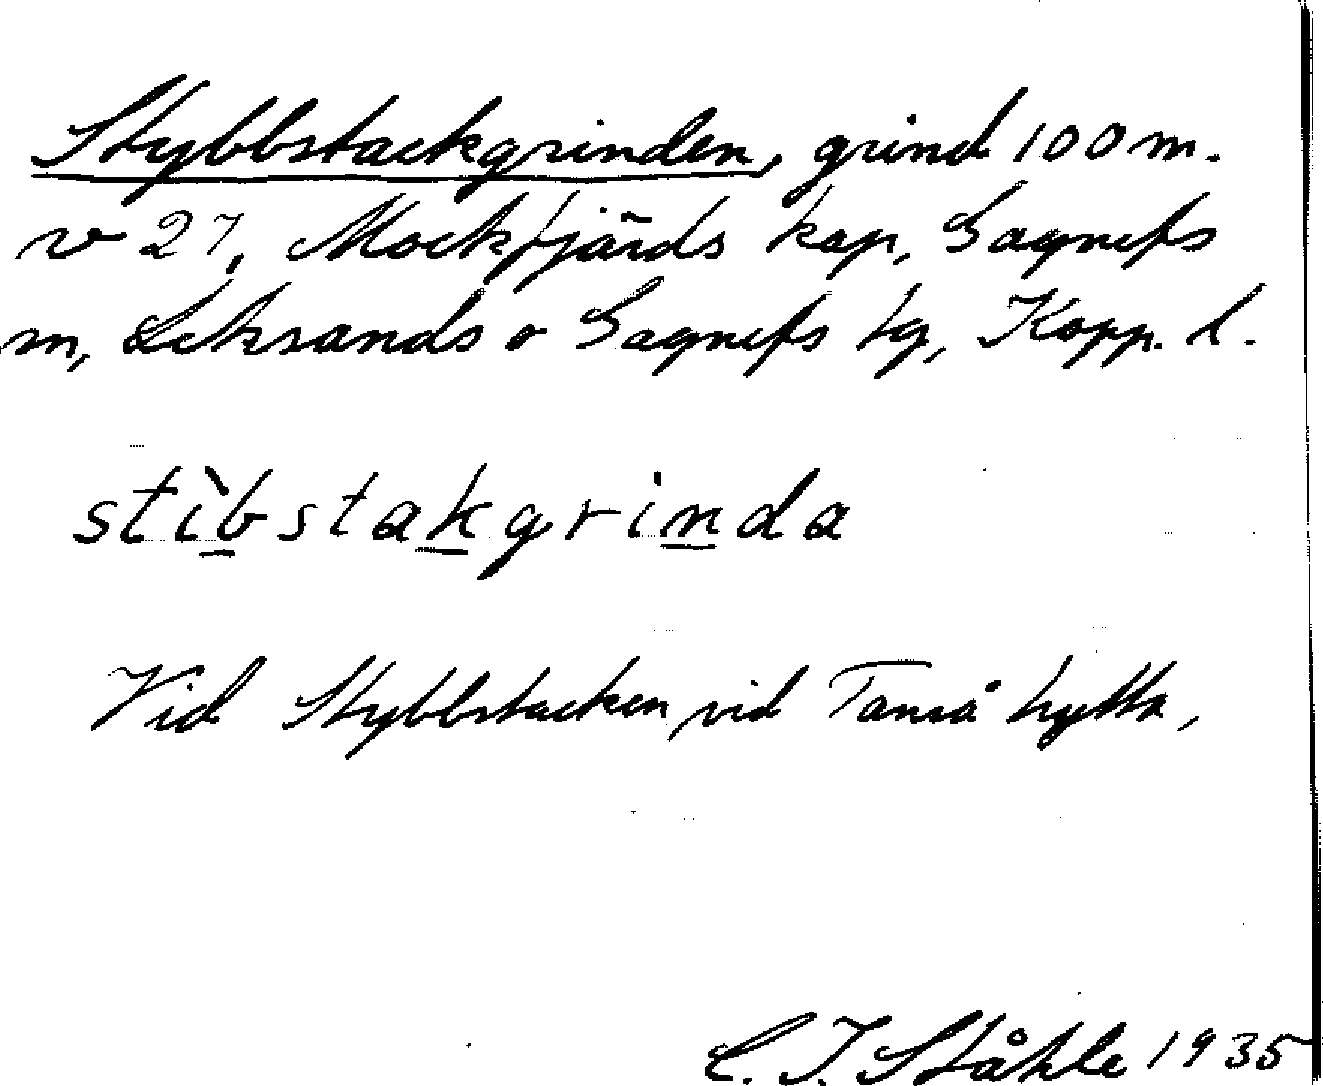 Stybbstackgrinden, grind 100 m.
v 27, Mockfjärds kap, Gagnefs
m, Leksands o Gagnefs tg, Kopp. l.
stìbstakgrinda
Vid Stybbstacken vid Tanså hytta,
C. I. Ståhle 1935